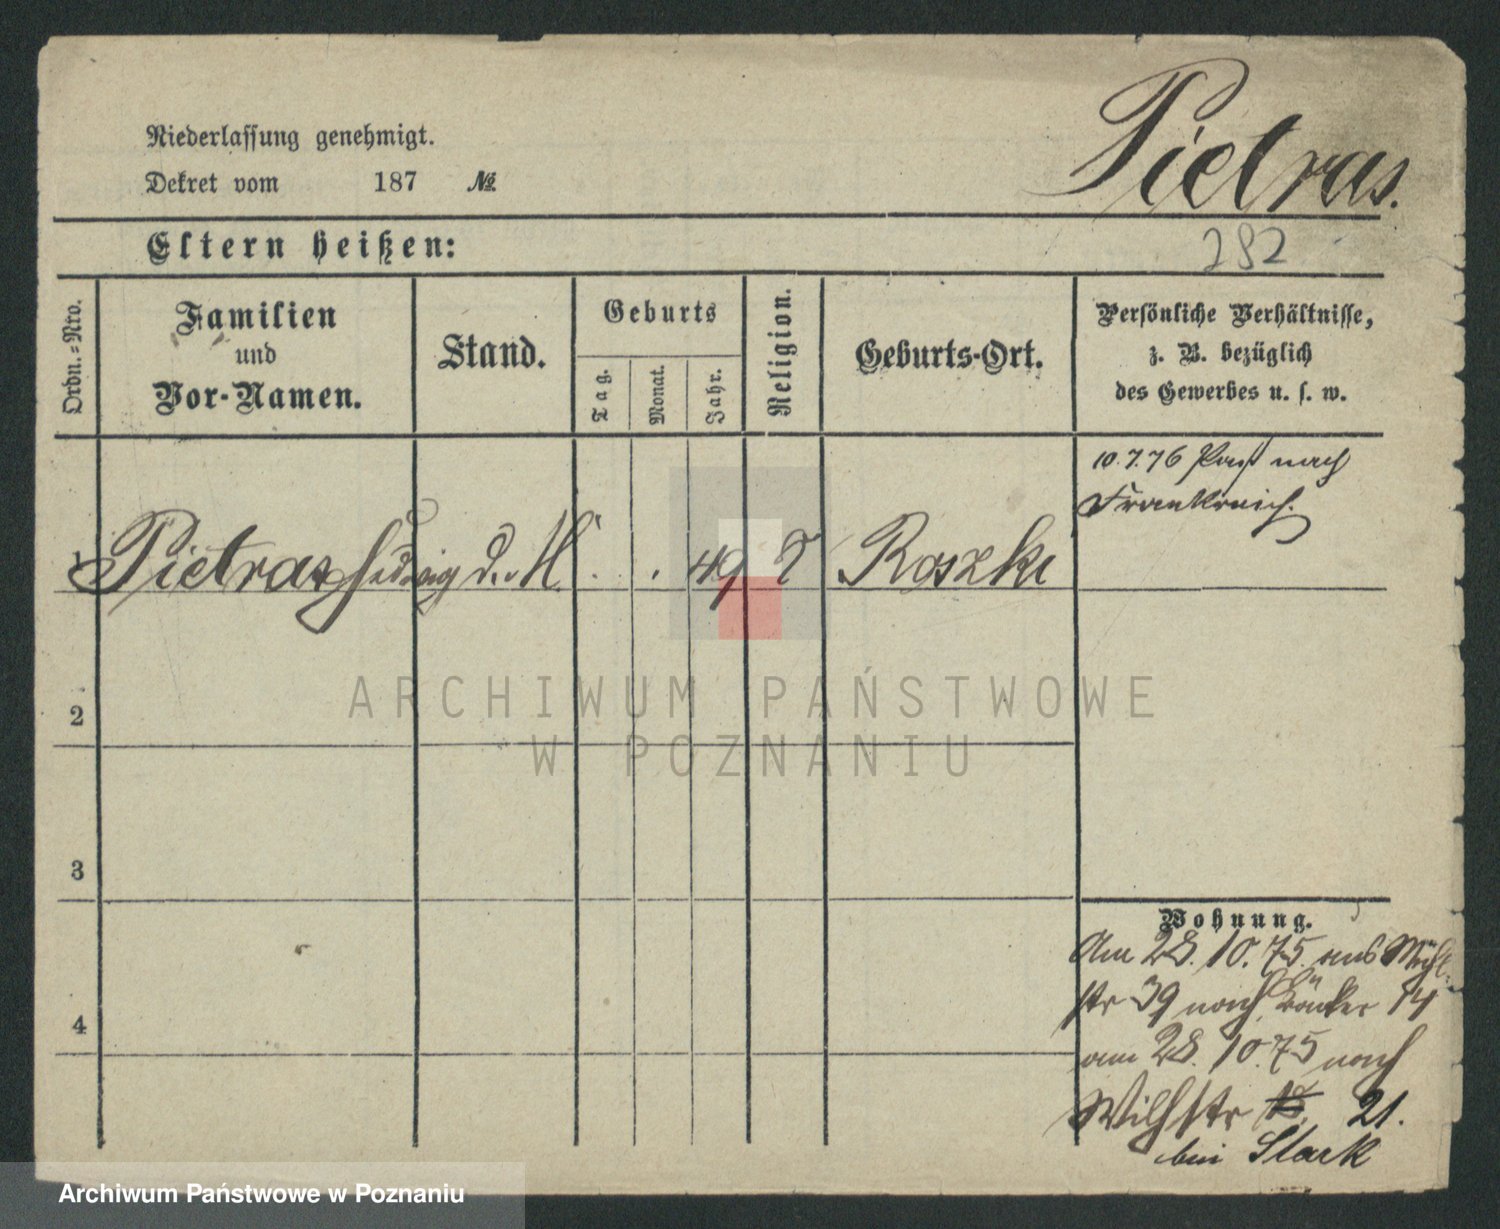 Pietras.
Niederlassung genehmigt.
Dekret vom 187 №
Eltern heißen:
282
Ordn.=Nro.
Familien
und
Vor-Namen.
Stand.
Geburts
Tag.
Monat.
Jahr.
Religion.
Geburts-Ort.
Persönliche Verhältnisse,
z. B. bezüglich
des Gewerbes u. s. w.
10.7.76 Paß nach
Frankreich.
1 Pietras Hedwig d. M. . . 49 Roszki
ARCHIWUM PAŃSTWOWE
W POZNANIU
2
3
4
Wohnung.
Am 28. 10. 75. aus Mühl-
str 39 nach Bäcker 14
am 28. 10. 75 nach
Wilhstr 21.
bei Stark
Archiwum Państwowe w Poznaniu